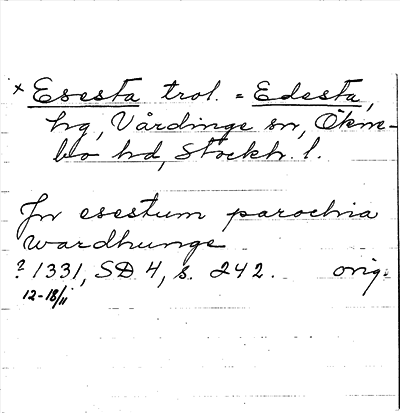 × Esesta trol. = Edesta,
hg, Vårdinge sn, Ökne-
bo hd, Stockh. l.
Jn esestum parochia
wardhunge
? 1331, SD 4, s. 242. orig.
12-18/11